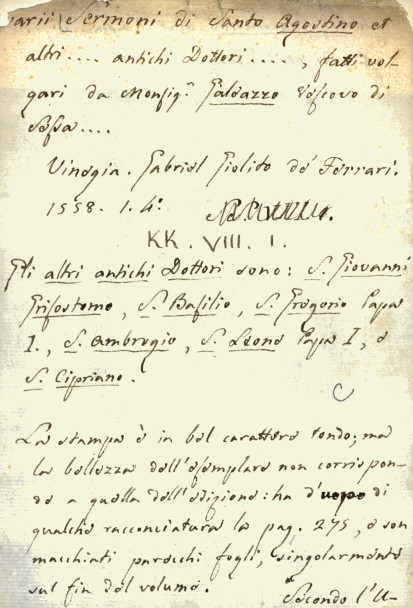 Varii Sermoni di Santo Agostino et
altri .... antichi Dottori ...., fatti vol-
gari da Monsigr. Galeazzo Vescovo di
Sessa ....
Vinegia. Gabriel Giolito de' Ferrari.
1558. 1. 4°.
KK. VIII. 1.
Gli altri antichi Dottori sono: S. Giovanni
Grisostomo, S. Basilio, S. Gregorio Papa
I., S. Ambrogio, S. Leone Papa I, e
S. Cipriano.
La stampa è in bel carattere tondo; ma
la bellezza dell'esemplare non corrispon-
de a quella dell'edizione: ha d'uopo di
qualche racconciatura la pag. 275, e son
macchiati parecchi fogli, singolarmente
sul fin del volume.
Secondo l'A-